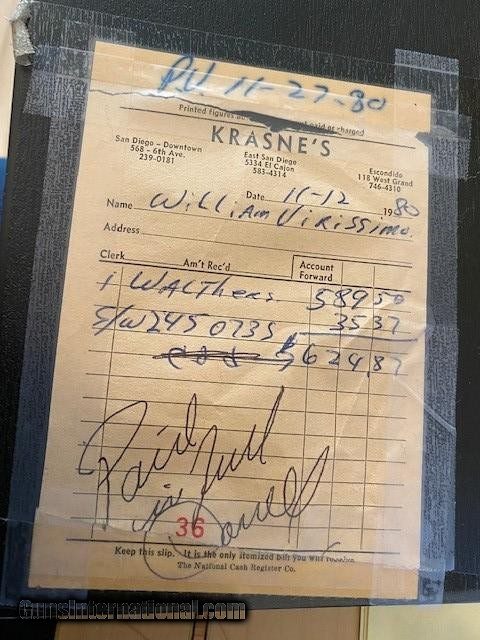 P.U 11-27-80
Printed figures paid or charged
KRASNE'S
San Diego – Downtown
568 – 6th Ave.
239-0181
East San Diego
5334 El Cajon
583-4314
Escondido
118 West Grand
746-4310
Date 11-12 1980
Name William Virissimo.
Address
Clerk Am't Rec'd Account Forward
1 WALTHERS 589 50
35 37
$624.87
Paid in full
36
Keep this slip. It is the only itemized bill you will receive.
The National Cash Register Co.
GunsInternational.com